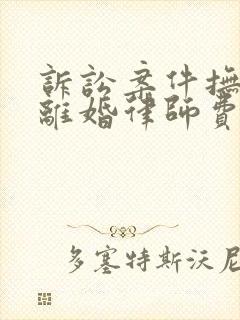 訴訟案件撫
離婚律師費
多塞特斯沃尼